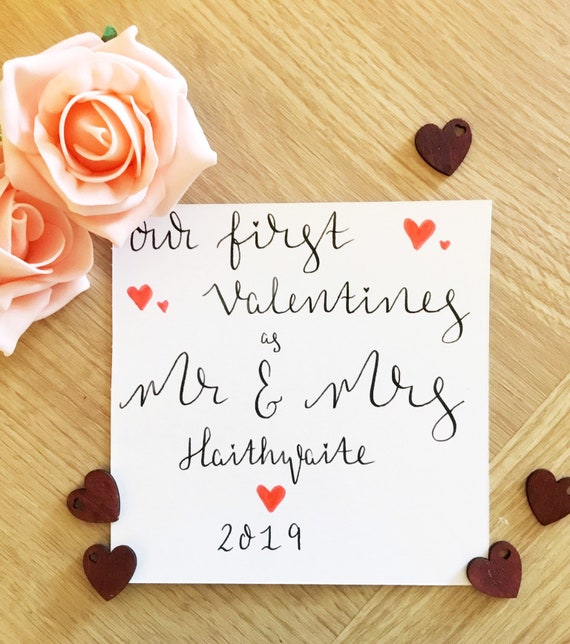 our first
Valentines
as
Mr & Mrs
Haithwaite
2019